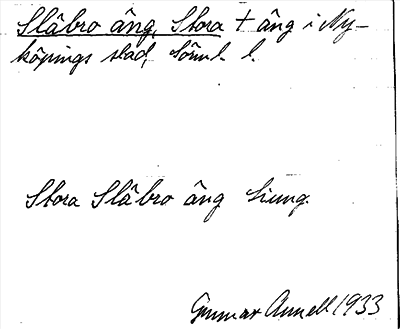 Slåbro äng, Stora + äng i Ny-
köpings stad, Söml. l.
Stora Slåbro äng Liung.
Gunnar Annell 1933